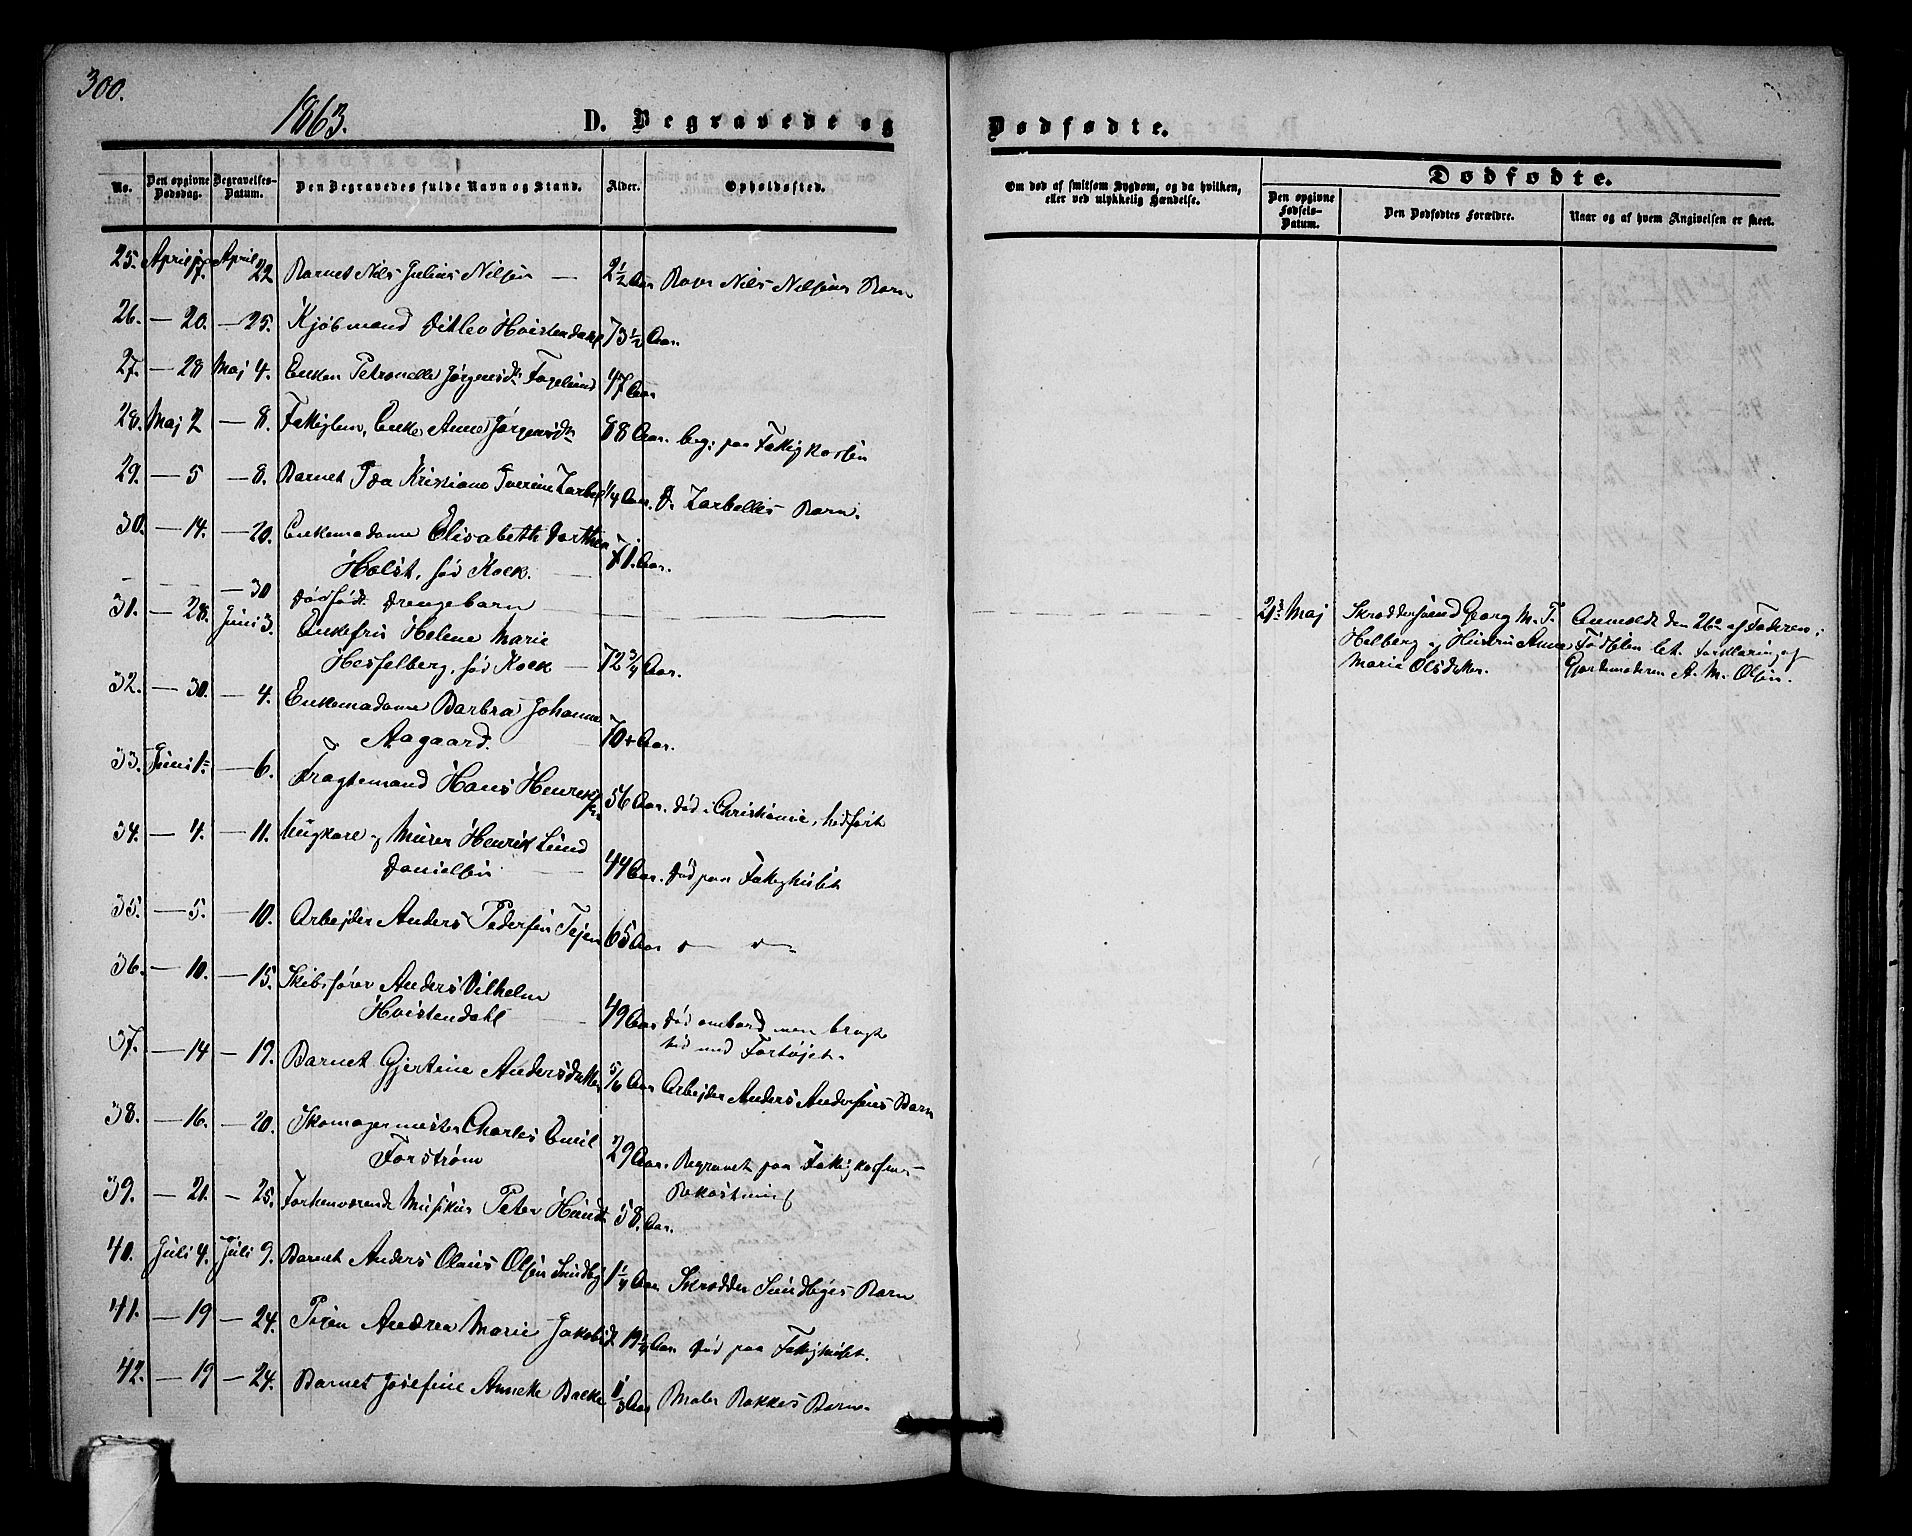 300.
1863.
D. Begravede og
Dødfødte.
No.
Den opgivne Dødsdag.
Begravelses-Datum.
Den Begravedes fulde Navn og Stand.
Alder.
Opholdssted.
Om død af smitsom Sygdom, og da hvilken,
eller ved ulykkelig Hændelse.
Dødfødte.
Den opgivne Fødsels-Datum.
Den Dødfødtes Forældre.
Naar og af hvem Angivelsen er skeet.
25. April 17. April 22 Barnet Nils Julius Nilsen — 2½ Aar Nils Nilsens Barn
26. — 20. — 25. Kjøbmand Ditlev Hvistendahl 73½ Aar.
27. — 28 Maj 4. Enken Petronelle Jørgensdt. Fagelund 47 Aar
28. Maj 2 — 8. Fattiglem, Enke Anne Jørgensdt. 88 Aar. beg. paa Fattigkassen
29. — 5 — 8. Barnet Ida Kristiane Zarbell ¼ Aar. Zarbells Barn.
30. — 14. — 20. Enkemadame Elisabeth Dorthea
Holst, fød Kock. — 71. Aar.
— 30 Dødfødt Drengebarn
23 Maj Skræddersvend Georg M. F. Anmeldt den 26de af Faderen;
Helberg og Hustru Anne Fødselen
Marie Olsdatter. Gjordemoderen A. M. Olsen.
31. — 28. Juni 3. Enkefru Helene Marie
Hesselberg, fød Kock — 72¾ Aar.
32. — 30. — 4. Enkemadame Barbra Johanne
Aagaard. 70 Aar.
33. Juni 1. — 6. Fragtemand Hans Henriksen 56 Aar. død i Christiania, hidført
34. — 4. — 11. Ungkarl og Murer Henrik Lund
Danielsen — 44 Aar. Død paa Fattighuset
35. — 5. — 10. Arbejder Anders Pedersen Tejen 65 Aar
36. — 10. — 15. Skibsfører Anders Vilhelm
Hvistendahl — 49 Aar Død ombord men bragt
hid med Fartøjet.
37. — 14 — 19. Barnet Gjertine Andersdatter 5/6 Aar Arbejder Anders Andersens Barn
38. — 16. — 20. Skomagermester Charles Emil
Forstrøm 29 Aar. Begravet paa Fattigkassens
Bekostning
39. — 21. — 25. Forhenværende Musikus Peter Hund 58. Aar.
40. Juli 4. Juli 9. Barnet Anders Olaus Olsen Sundby 1¼ Aar Skrædder Sundbyes Barn
41. — 19 — 24. Pigen Andrea Marie Jakobsdt. 19½ Aar Død paa Fattighuset.
42. — 19 — 24. Barnet Josefine Anneke Bakke Aar Maler Bakkes Barn.